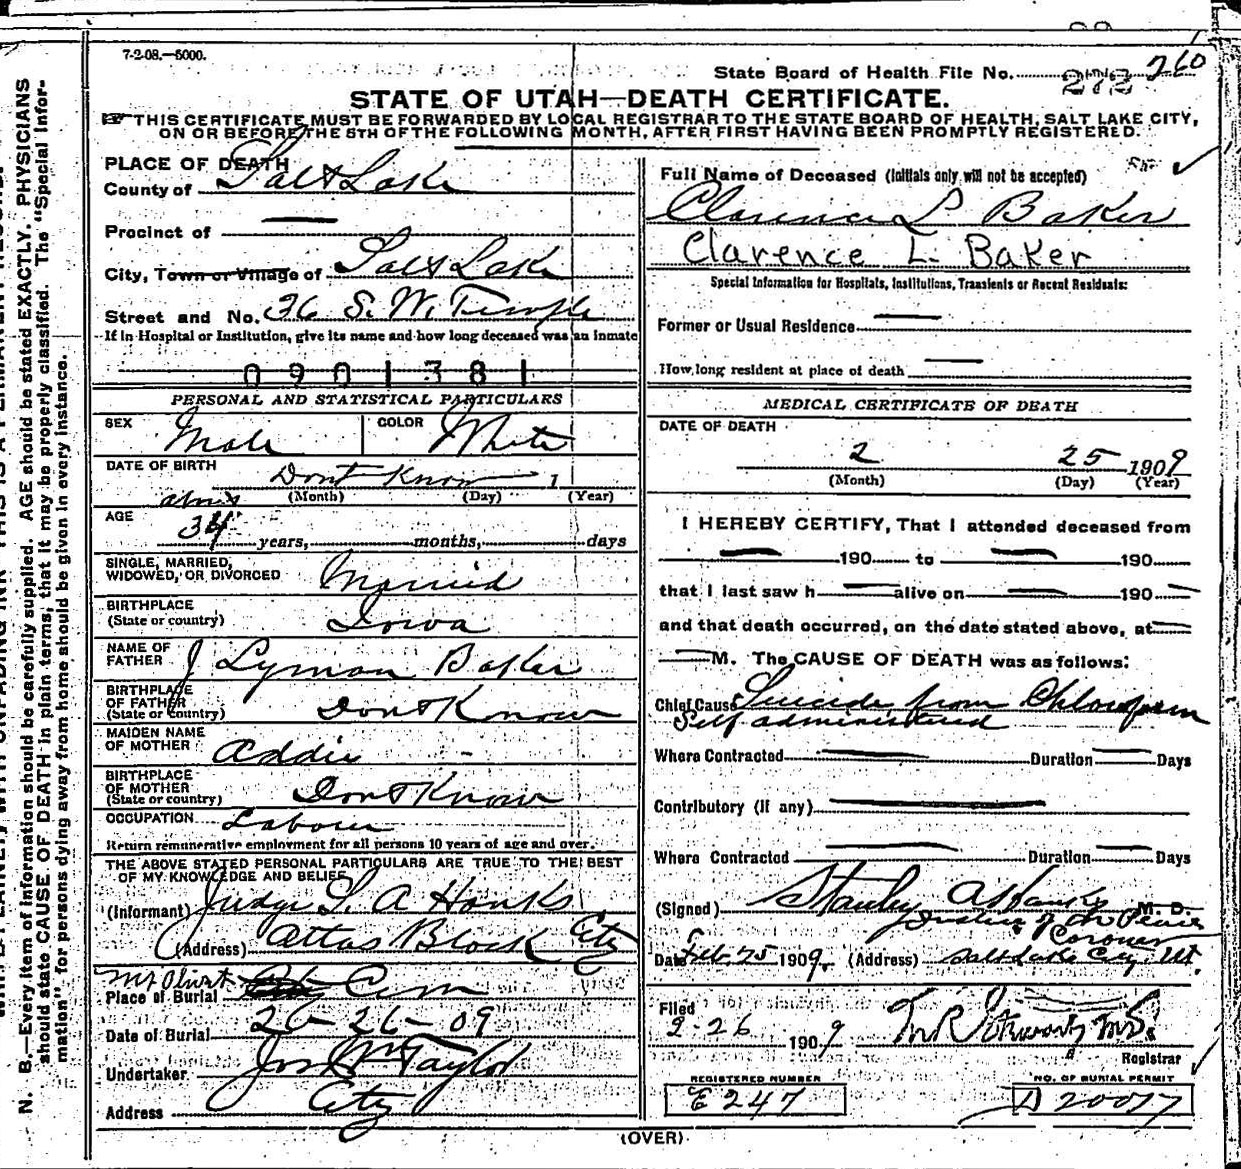 7-2-08.—5000.
State Board of Health File No. 272 260
STATE OF UTAH—DEATH CERTIFICATE.
THIS CERTIFICATE MUST BE FORWARDED BY LOCAL REGISTRAR TO THE STATE BOARD OF HEALTH, SALT LAKE CITY,
ON OR BEFORE THE 5TH OF THE FOLLOWING MONTH, AFTER FIRST HAVING BEEN PROMPTLY REGISTERED.
N. B.—Every item of information should be carefully supplied. AGE should be stated EXACTLY. PHYSICIANS
should state CAUSE OF DEATH in plain terms, that it may be properly classified. The "Special Infor-
mation" for persons dying away from home should be given in every instance.
PLACE OF DEATH
County of Salt Lake
Precinct of —
City, Town or Village of Salt Lake
Street and No. 36 S. W. Temple
If in Hospital or Institution, give its name and how long deceased was an inmate
0901381
PERSONAL AND STATISTICAL PARTICULARS
SEX Male COLOR White
DATE OF BIRTH Dont Know 1
(Month) (Day) (Year)
AGE about 34 years, months, days
SINGLE, MARRIED,
WIDOWED, OR DIVORCED Married
BIRTHPLACE
(State or country) Iowa
NAME OF
FATHER J Lyman Baker
BIRTHPLACE
OF FATHER
(State or country) Dont Know
MAIDEN NAME
OF MOTHER Addie -
BIRTHPLACE
OF MOTHER
(State or country) Dont Know
OCCUPATION Laborer
Return remunerative employment for all persons 10 years of age and over.
THE ABOVE STATED PERSONAL PARTICULARS ARE TRUE TO THE BEST
OF MY KNOWLEDGE AND BELIEF
(Informant) Judge S. A Hanks
(Address) Atlas Block City
Place of Burial Mt Olivet Cem
Date of Burial 2-26-09
Undertaker Jos Wm Taylor
Address City
Full Name of Deceased (Initials only will not be accepted)
Clarence L Baker
Clarence L. Baker
Special Information for Hospitals, Institutions, Transients or Recent Residents:
Former or Usual Residence —
How long resident at place of death —
MEDICAL CERTIFICATE OF DEATH
DATE OF DEATH
2 25 1909
(Month) (Day) (Year)
I HEREBY CERTIFY, That I attended deceased from
— 190 to — 190
that I last saw h — alive on — 190 —
and that death occurred, on the date stated above, at —
— M. The CAUSE OF DEATH was as follows:
Chief Cause Suicide from Chloroform
Self administered
Where Contracted — Duration — Days
Contributory (if any) —
Where Contracted — Duration — Days
(Signed) Stanley A Hanks M. D.
Justice of the Peace
Coroner
Date Feb 25 1909. (Address) Salt Lake City Ut.
Filed
2-26 1909
Registrar
REGISTERED NUMBER
E 247
NO. OF BURIAL PERMIT
D 20077
(OVER)